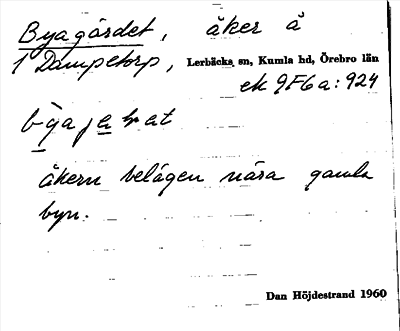 Byagärdet, åker å
1 Dampetorp, Lerbäcks sn, Kumla hd, Örebro län
ek 9F6a:924
åkern belägen nära gamla
byn.
Dan Höjdestrand 1960